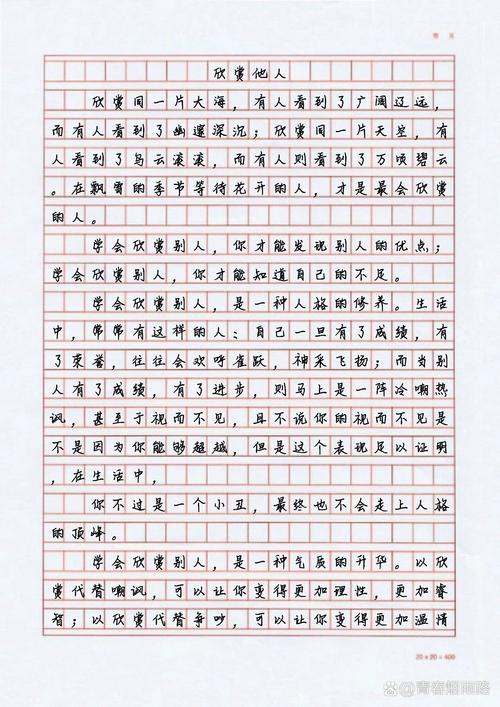 欣赏他人
欣赏同一片大海，有人看到了广阔辽远，
而有人看到了幽邃深沉；欣赏同一片天空，有
人看到了乌云滚滚，而有人则看到了万顷碧云
。在飘雪的季节等待花开的人，才是最会欣赏
的人。
学会欣赏别人，你才能发现别人的优点；
学会欣赏别人，你才能知道自己的不足。
学会欣赏别人，是一种人格的修养。生活
中，常常有这样的人：自己一旦有了成绩，有
了荣誉，往往会欢呼雀跃，神采飞扬；而当别
人有了成绩，有了进步，则马上是一阵冷嘲热
讽，甚至于视而不见，且不说你的视而不见是
不是因为你能够超越，但是这个表现足以证明
，在生活中，
你不过是一个小丑，最终也不会走上人格
的顶峰。
学会欣赏别人，是一种气质的升华。以欣
赏代替嘲讽，可以让你变得更加理性，更加睿
智；以欣赏代替争吵，可以让你变得更加温情
20×20=400
百家号/青春烟雨路